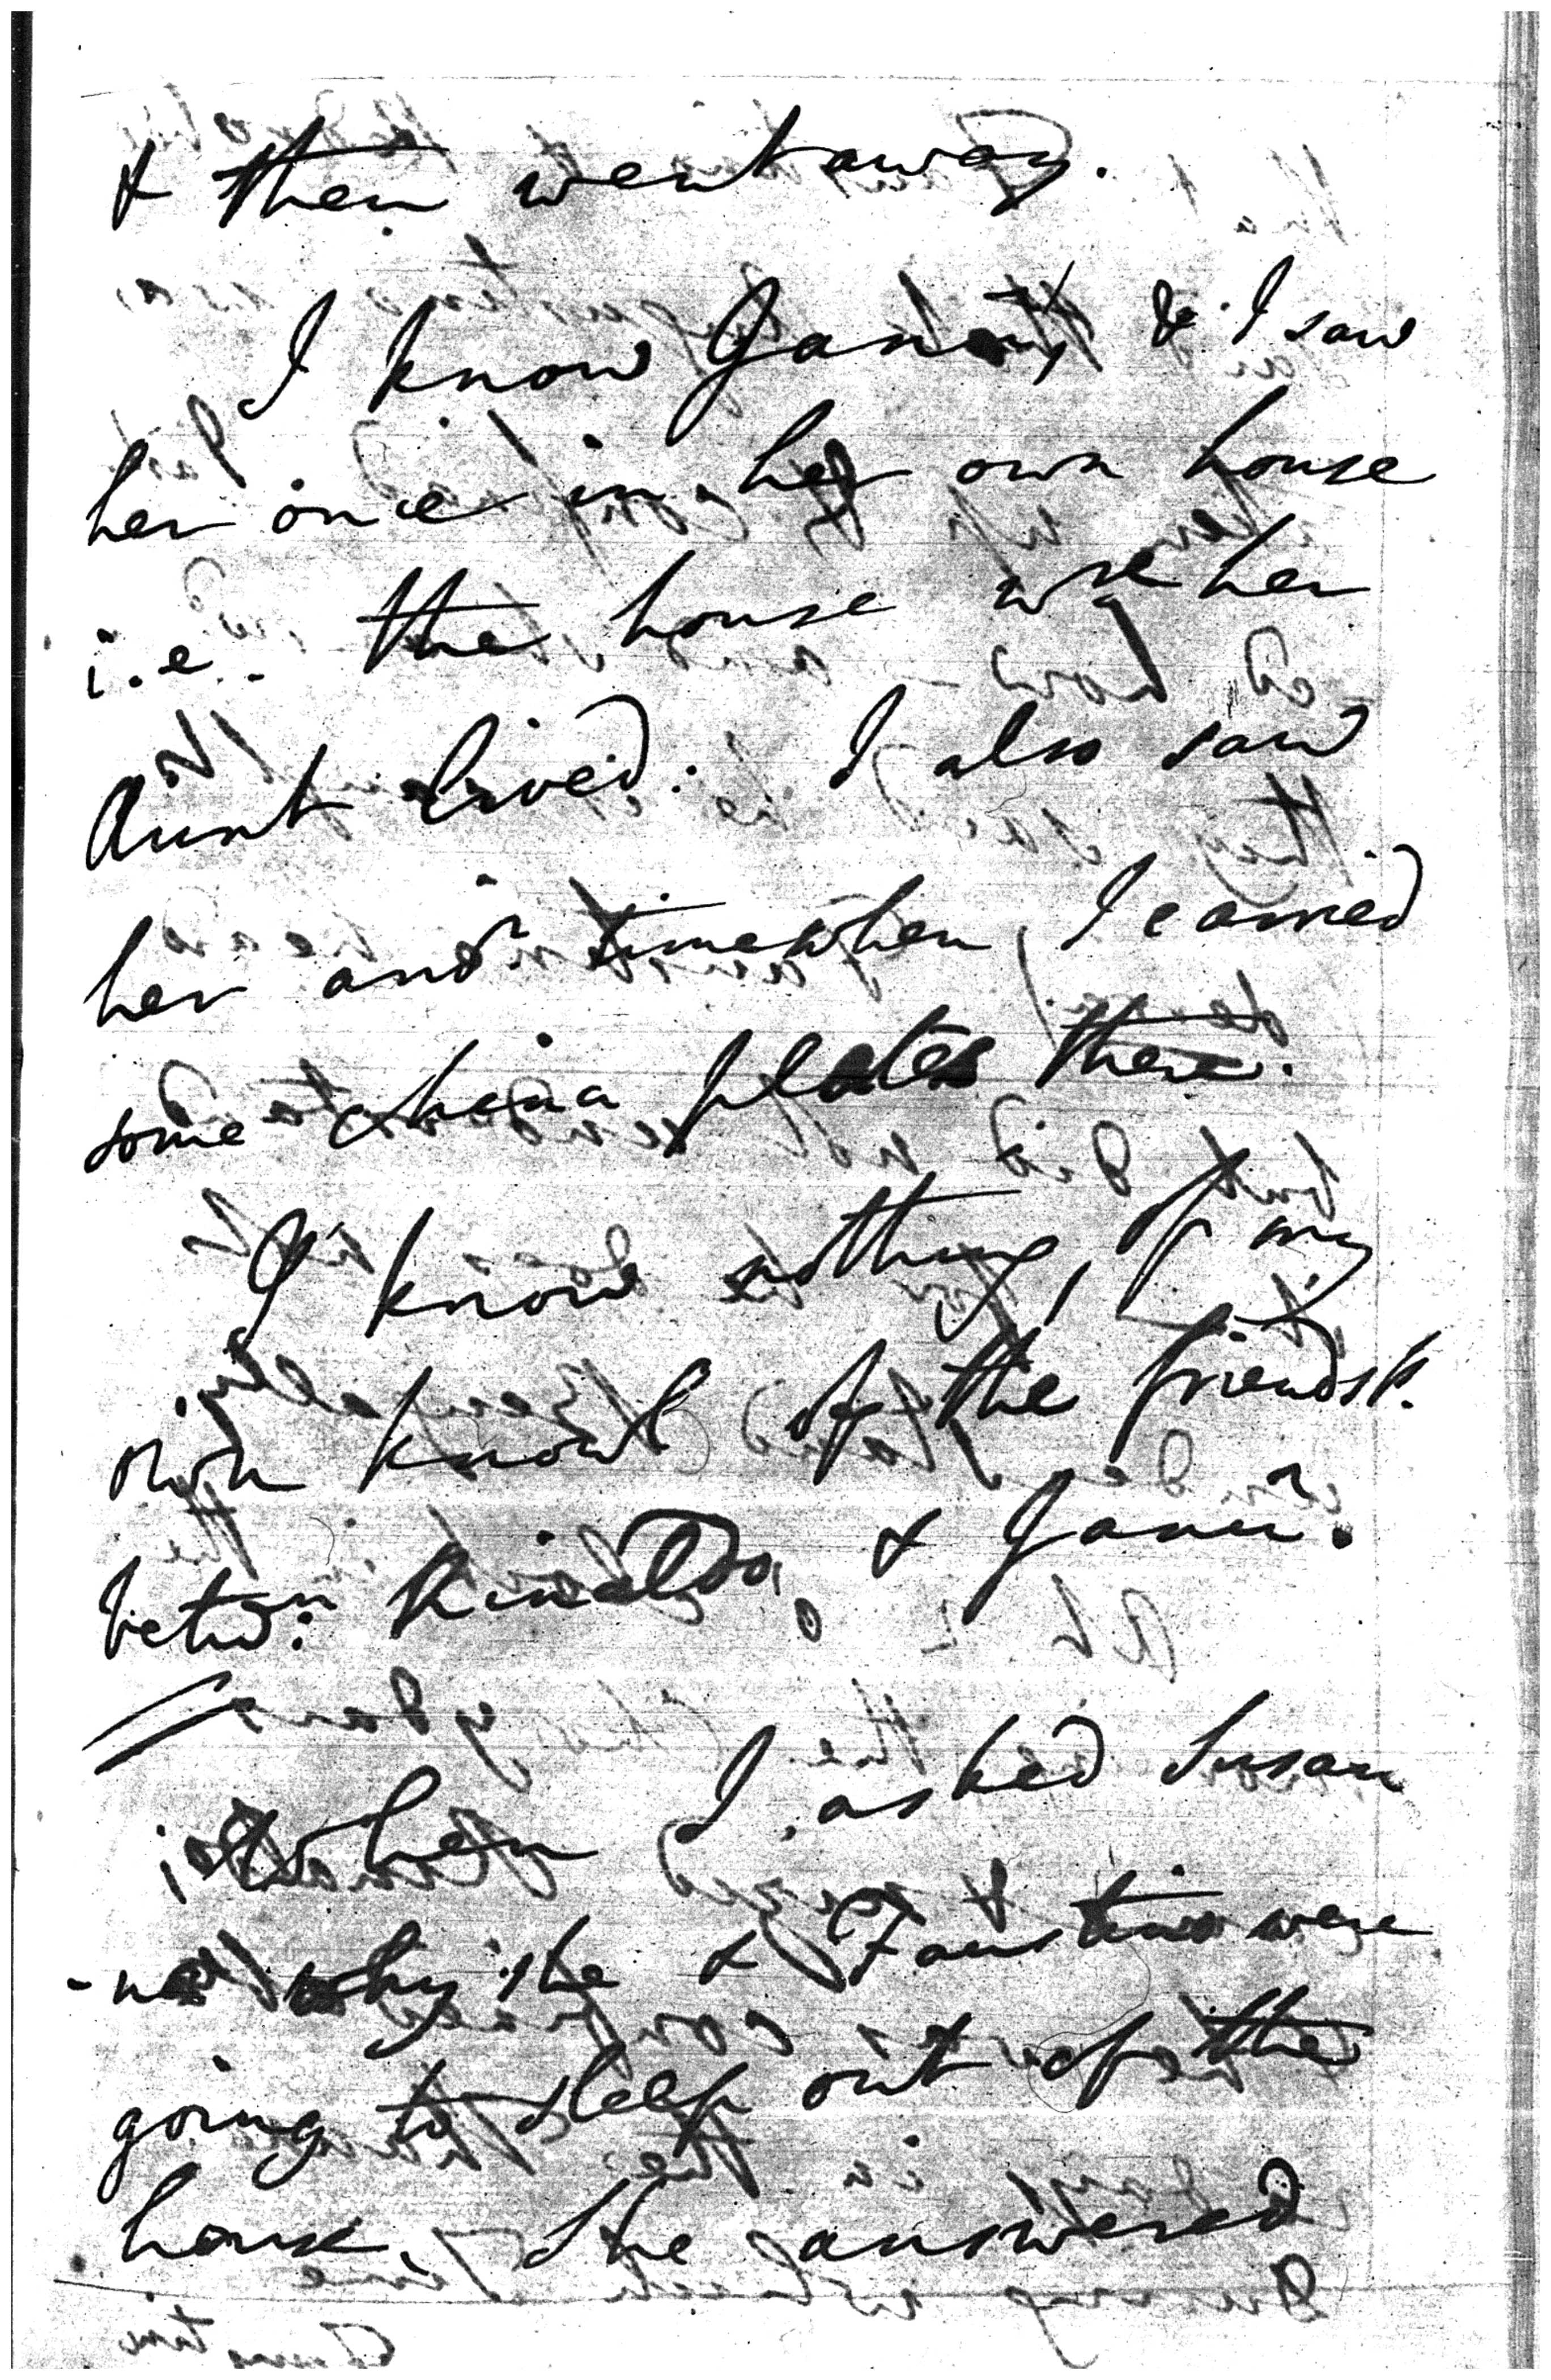 & then went away.
I know Janey, & I saw
her once in her own house
i.e. the house wre her
Aunt lived. I also saw
her anor time when, I carried
some china plates there.
I know nothing, of my
own knowl of the friendsh.
betwn Rinaldo & Janey.
When I asked Susan
why she & Faustino were
going to sleep out of the
house, She answered